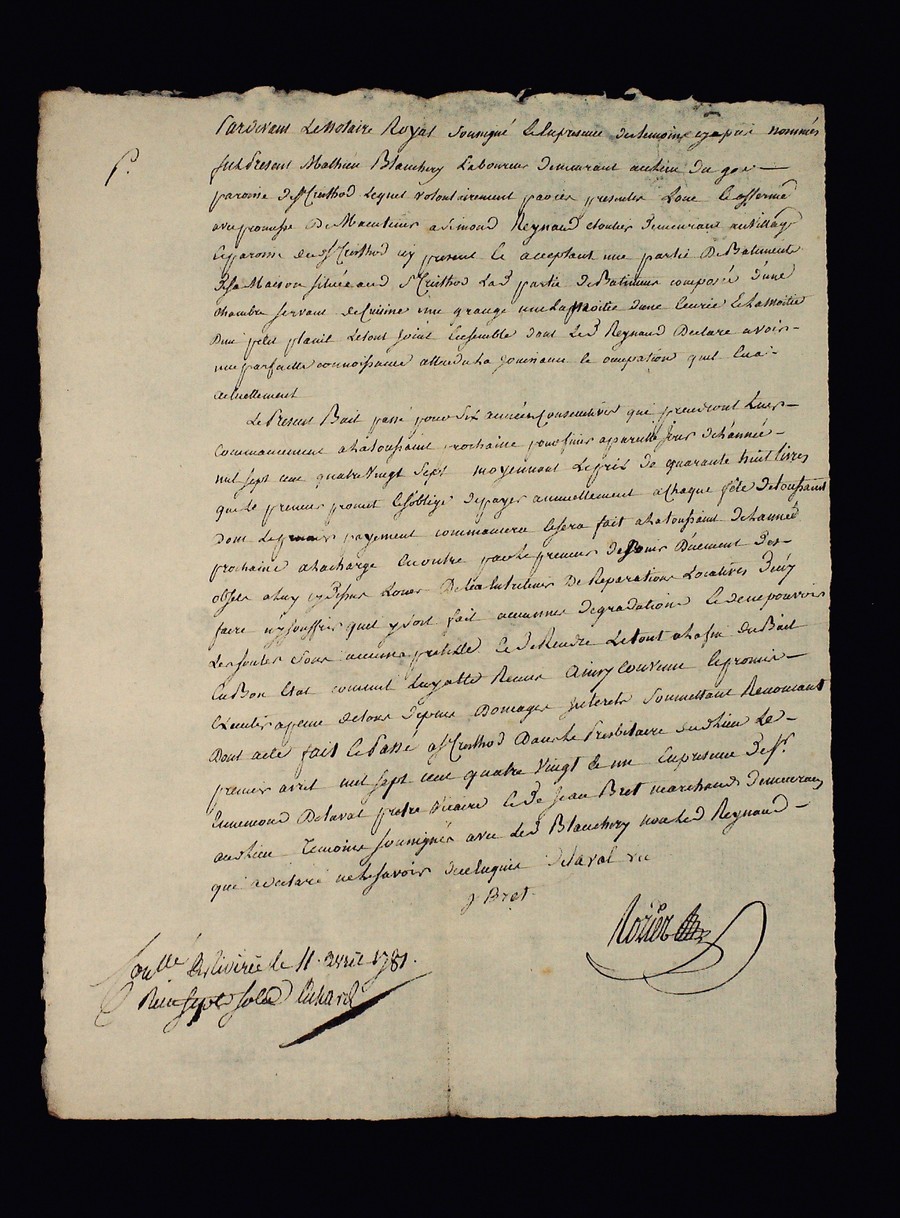 Pardevant Le Notaire Royal Soussigné & En presence des temoins cy apres nommés
fut Present Mathieu Blanchery Laboureur demeurant au lieu du
P.
paroisse de St Cristhod Lequel volontairement par ces presentes Loue & afferme
avec promesse De Maintenir a Simond Reynaud cloutier Demeurant au village
& paroisse de St Cristhod icy present & acceptant une partie De Batiments
De sa Maison situee aud St Cristhod Lad partie de Batiments composée d'une
chambre servant de Cuisine une grange une La moitie d'une Ecurie & La moitie
D'un petit Letout Joint Ensemble dont Led Reynaud Declare avoir
une parfaitte connoissance attendu La Jouissance & occupation quil En a
actuellement
Le Present Bail passé pour Six années Consecutives qui prendront Leur
Commancement a La toussaint prochaine pour finir a pareille Jour de L'année
mil sept cent quatre vingt sept moyennant Le prix de quarante huit Livres
que le preneur promet & s'oblige de payer annuellement a chaque fête de toussaint
Dont Le premier payement commancera & sera fait a La toussaint de L'année
prochaine a La charge En outre par Le preneur de Jouir Duement Des
objets a Luy cy Dessus Loués De Les Entretenir De Reparations Locatives D'en y
faire ny souffrir quil y soit fait aucunes degradations & de ne pouvoir
Les sous aucun pretexte & de Rendre Letout a La fin du Bail
En Bon Etat comme Il Recue Ainsy Convenu & promis
Executer a peine de tous Depens Domages Interets Soumettant Renoncant
Dont acte fait & Passé a St Cristhod Dans Le Presbitaire dudit lieu Le
premier avril mil sept cent quatre vingt & un En presence De Sr
Ennemond Delaval pretre vicaire & de Jean Bret marchand demeurant
audit lieu Temoins soussignés avec Led Blanchery non Led Reynaud
qui a declaré ne Le savoir de ce Enquis Delaval vic
J Bret
Rozier
Conllé à la Rivirée le 11 avril 1781.
Reçu sept sols